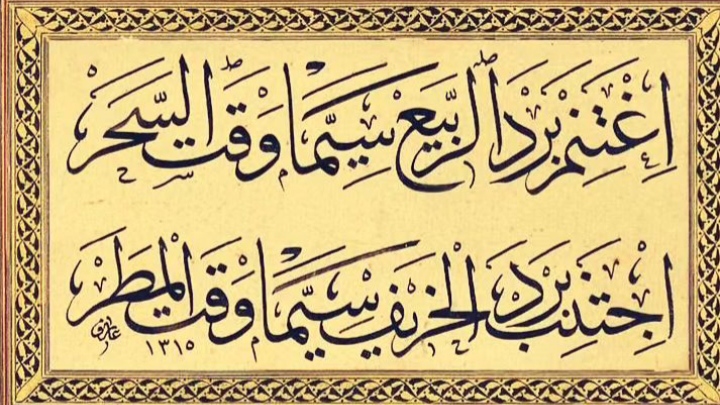 اِغْتَنِمْ بَرْدَ الرَّبِيعْ سِيَّمَا وَقْتَ السَّحَرْ
اِجْتَنِبْ بَرْدَ الْخَرِيفْ سِيَّمَا وَقْتَ الْمَطَرْ
عارف ١٣١٥